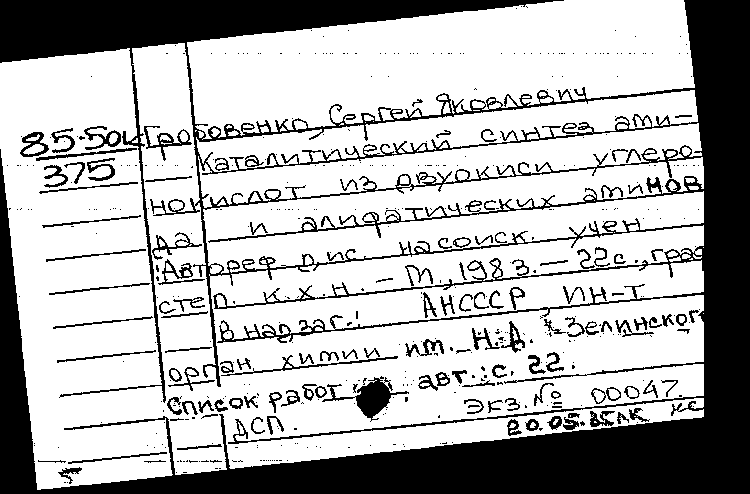 85-50к Гробовенко, Сергей Яковлевич
375 Каталитический синтез ами-
нокислот из двуокиси углеро-
да и алифатических аминов
: Автореф дис. на соиск. учен
степ. к.х.н. - М., 1983. - 22с., граф
В надзаг.: АН СССР, ИН-Т
орган химии им. Н.Д. Зелинского
Список работ авт.: с. 22.
ДСП. Экз. № 00047.
20.05.85